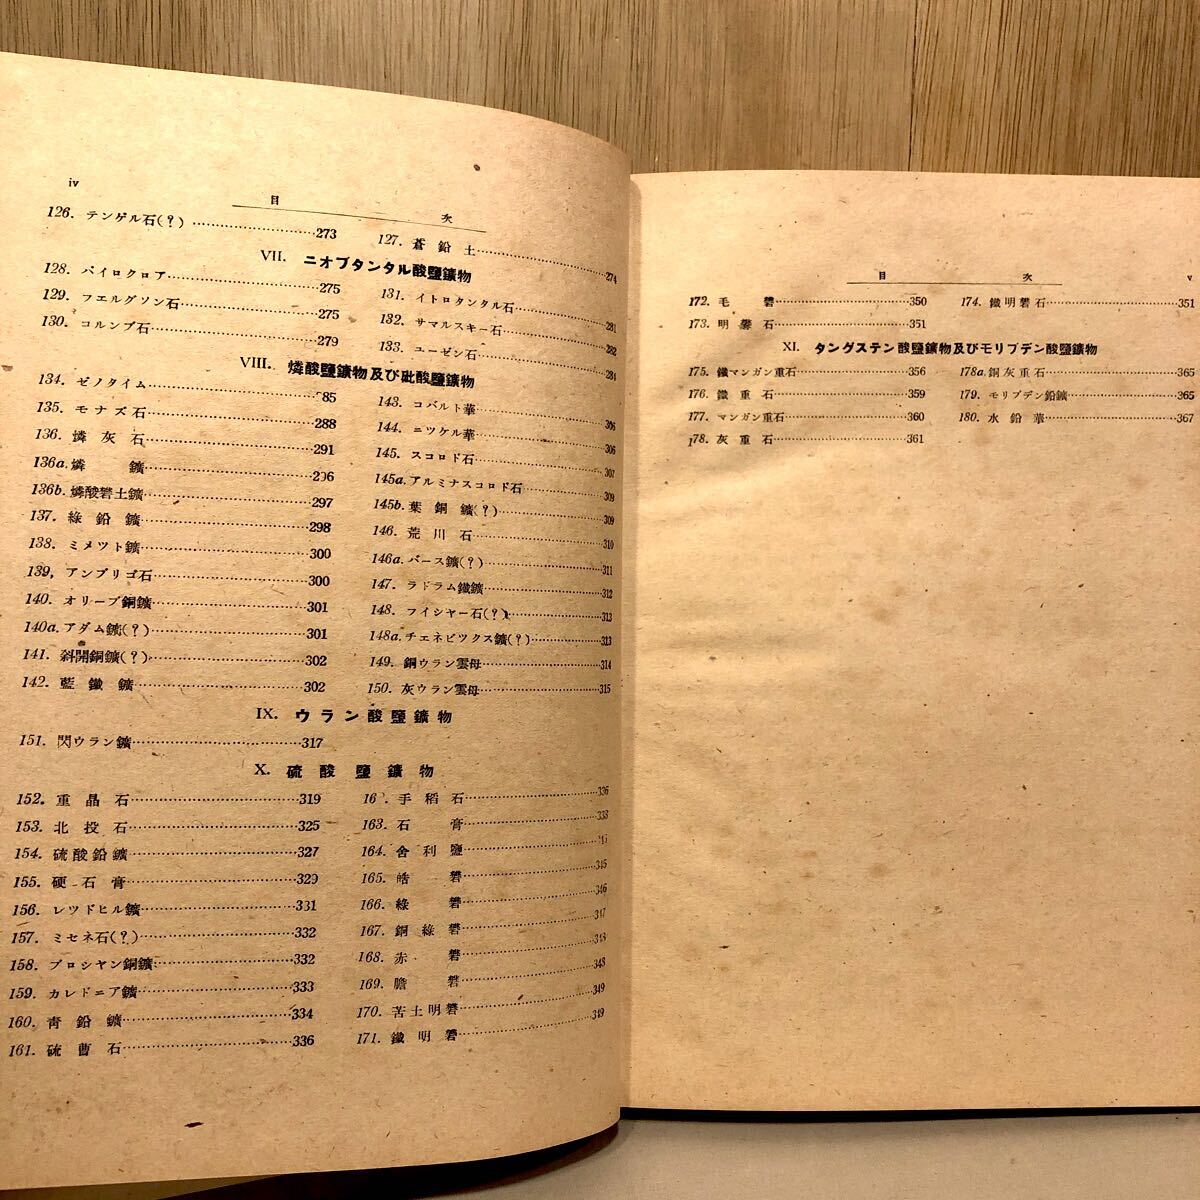 iv
目次
126. テンゲル石(?) 273
127. 蒼鉛土 274
VII. ニオブタンタル酸鹽鑛物
128. パイロクロア 275
129. フエルグソン石 275
130. コルンブ石 279
131. イトロタンタル石 281
132. サマルスキー石 282
133. ユーゼン石 284
VIII. 燐酸鹽鑛物及び砒酸鹽鑛物
134. ゼノタイム 85
135. モナズ石 288
136. 燐灰石 291
136a. 燐鑛 296
136b. 燐酸礬土鑛 297
137. 綠鉛鑛 298
138. ミメツト鑛 300
139, アンブリゴ石 300
140. オリーブ銅鑛 301
140a. アダム鑛(?) 301
141. 斜開銅鑛(?) 302
142. 藍鐵鑛 302
143. コバルト華 306
144. ニツケル華 306
145. スコロド石 307
145a. アルミナスコロド石 309
145b. 葉銅鑛(?) 309
146. 荒川石 310
146a. バース鑛(?) 311
147. ラドラム鐵鑛 312
148. フイシヤー石(?) 313
148a. チエネビツクス鑛(?) 313
149. 銅ウラン雲母 314
150. 灰ウラン雲母 315
IX. ウラン酸鹽鑛物
151. 閃ウラン鑛 317
X. 硫酸鹽鑛物
152. 重晶石 319
153. 北投石 325
154. 硫酸鉛鑛 327
155. 硬石膏 329
156. レツドヒル鑛 331
157. ミセネ石(?) 332
158. ブロシヤン銅鑛 332
159. カレドニア鑛 333
160. 靑鉛鑛 334
161. 硫曹石 336
16 . 手稻石 336
163. 石膏 338
164. 舍利鹽
165. 皓礬 345
166. 綠礬 346
167. 銅綠礬 347
168. 赤礬 348
169. 膽礬 348
170. 苦土明礬 349
171. 鐵明礬 349
目次
v
172. 毛礬 350
173. 明礬石 351
174. 鐵明礬石 351
XI. タングステン酸鹽鑛物及びモリブデン酸鹽鑛物
175. 鐵マンガン重石 356
176. 鐵重石 359
177. マンガン重石 360
178. 灰重石 361
178a. 銅灰重石 365
179. モリブデン鉛鑛 365
180. 水鉛華 367